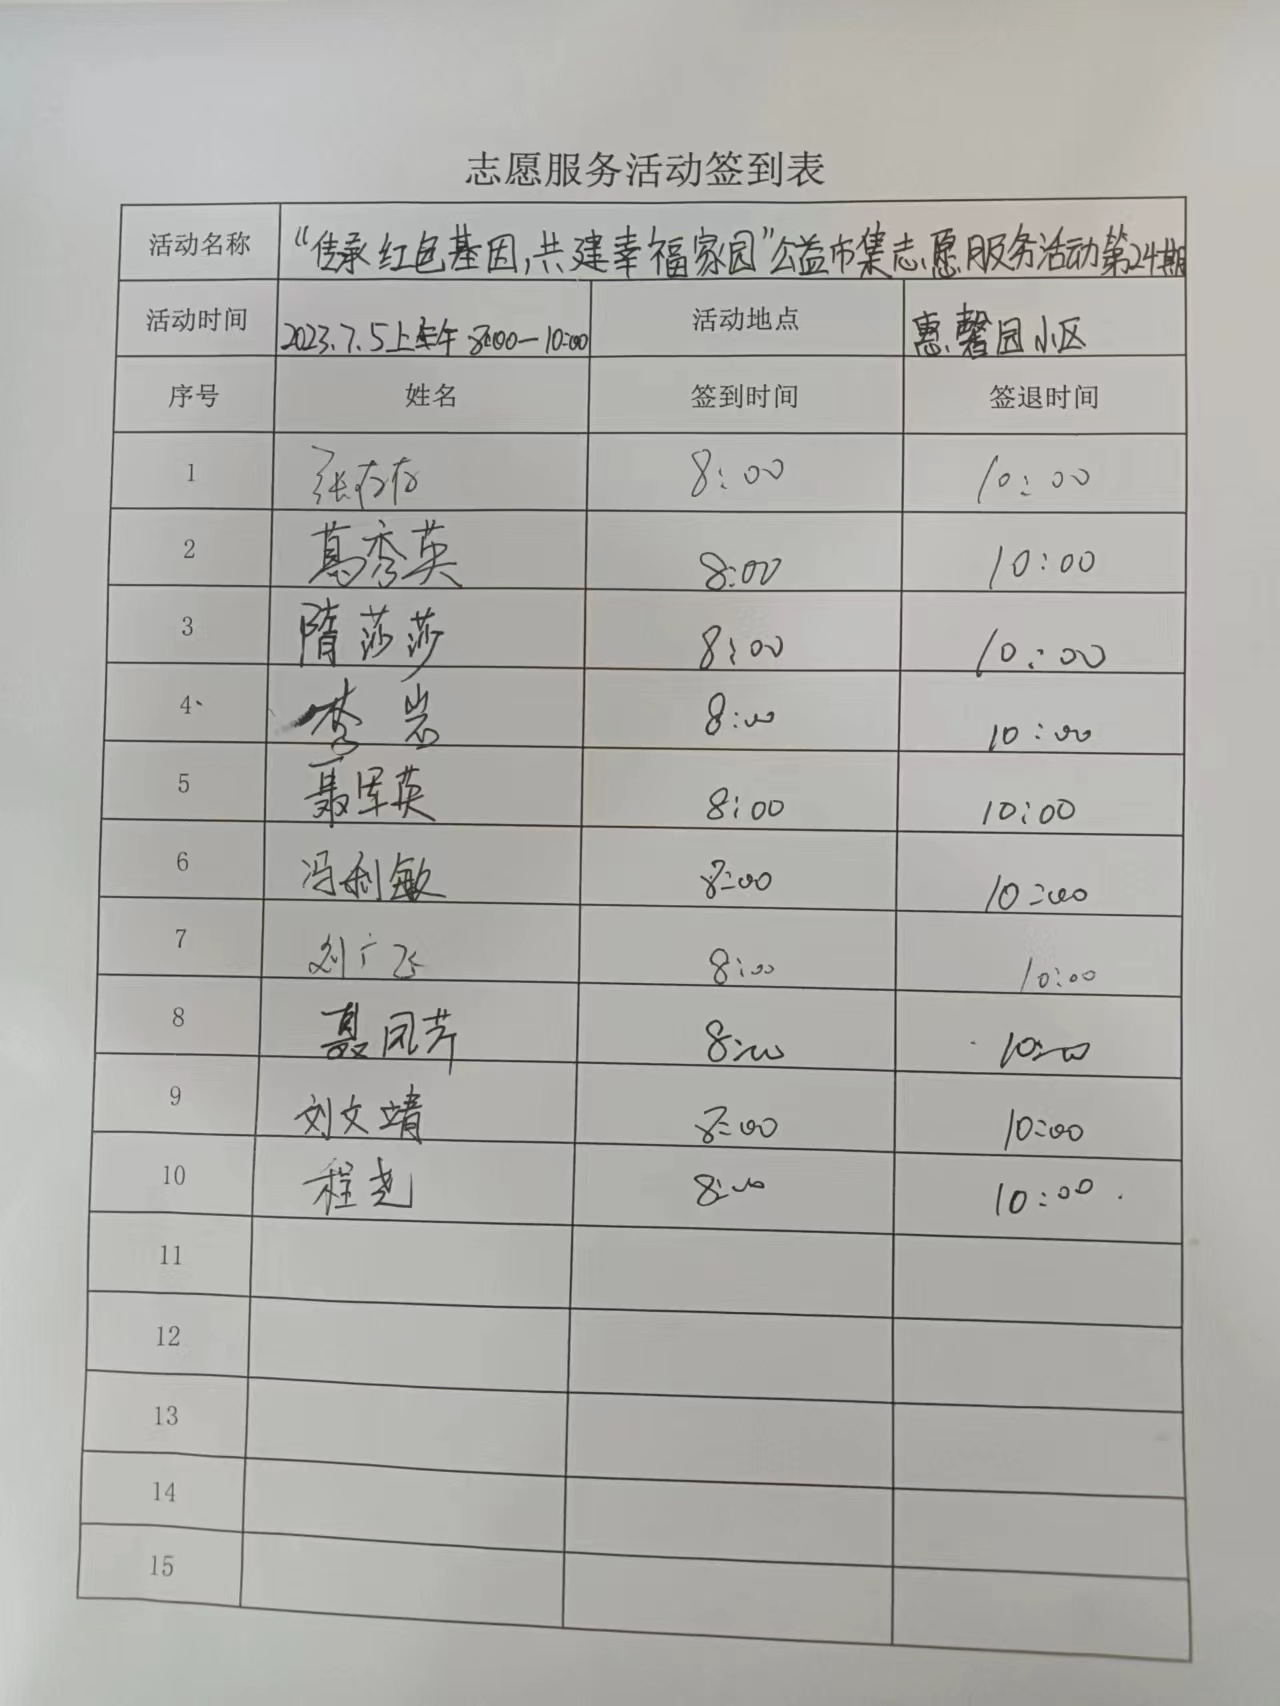 志愿服务活动签到表
活动名称 “传承红色基因,共建幸福家园”公益市集志愿服务活动第24期
活动时间 2023.7.5上午 8:00—10:00 活动地点 惠馨园小区
序号 姓名 签到时间 签退时间
1 张存存 8:00 10:00
2 葛秀英 8:00 10:00
3 隋莎莎 8:00 10:00
4 李岩 8:00 10:00
5 聂军英 8:00 10:00
6 冯利敏 8:00 10:00
7 刘广飞 8:00 10:00
8 聂凤芹 8:00 10:00
9 刘文靖 8:00 10:00
10 程尧 8:00 10:00
11
12
13
14
15